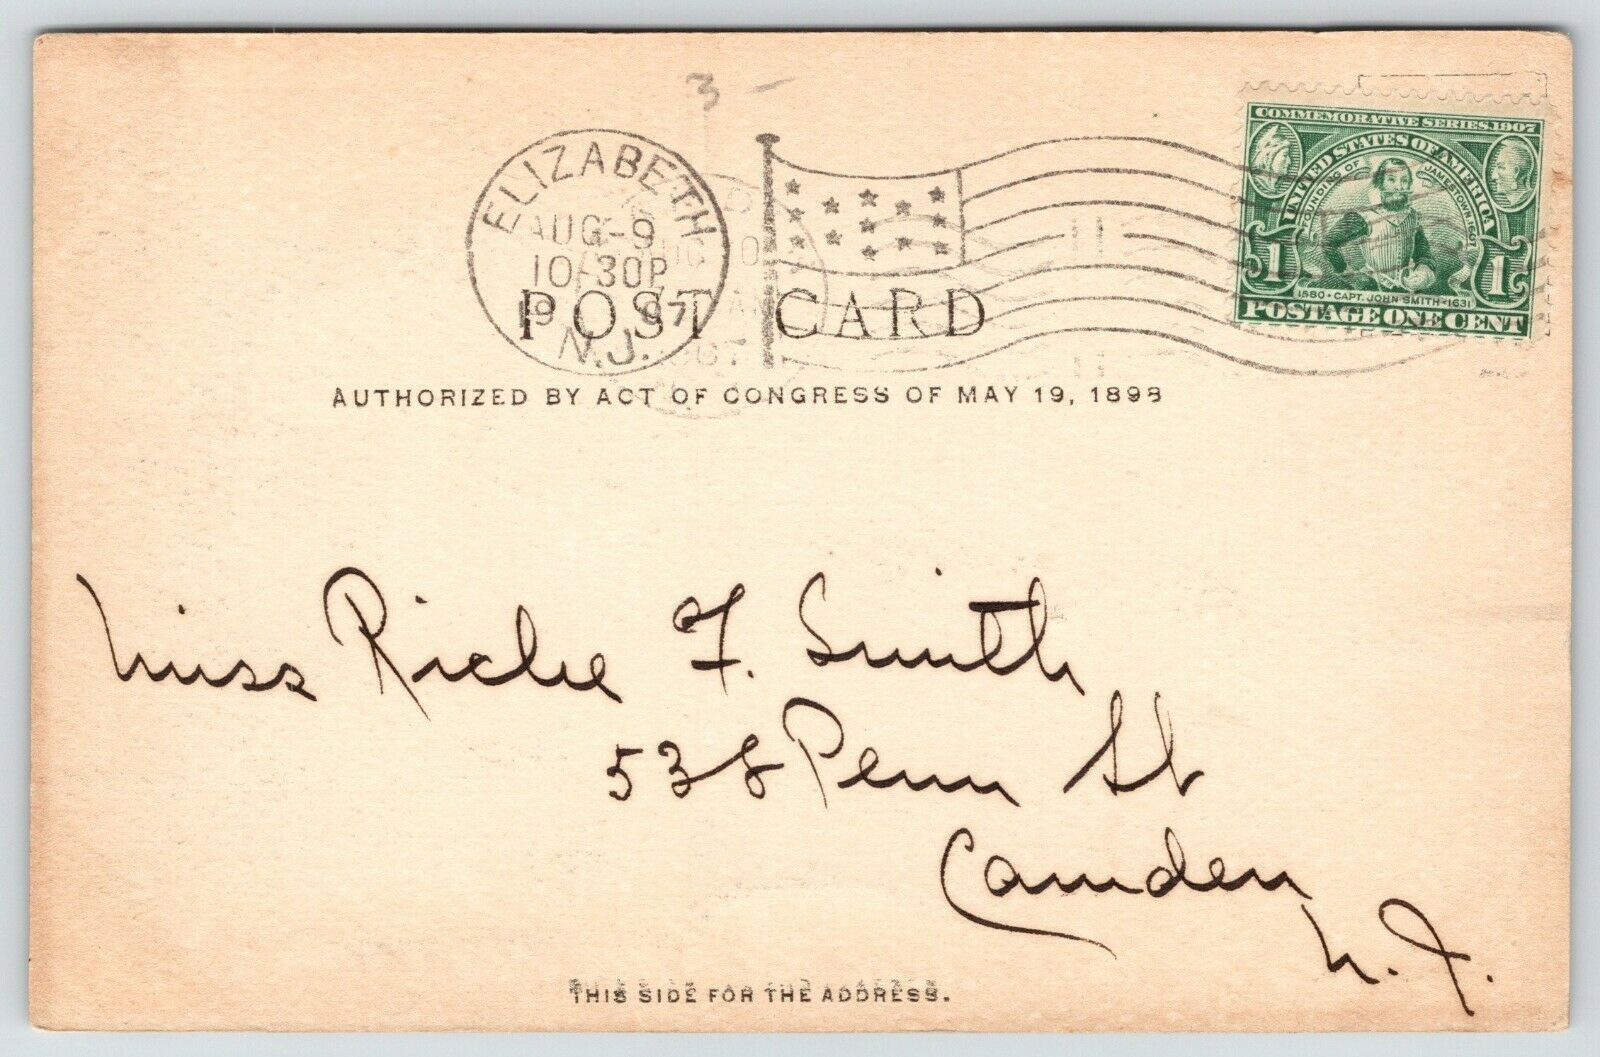 3 -
ELIZABETH
AUG-9
10-30P
1907
N.J.
COMMEMORATIVE SERIES 1907
UNITED STATES OF AMERICA
FOUNDING OF JAMESTOWN 1607
1 1
1580 • CAPT. JOHN SMITH • 1631
POSTAGE ONE CENT
POST CARD
AUTHORIZED BY ACT OF CONGRESS OF MAY 19, 1898
Miss Richie F. Smith
538 Penn St
Camden
N. J.
THIS SIDE FOR THE ADDRESS.